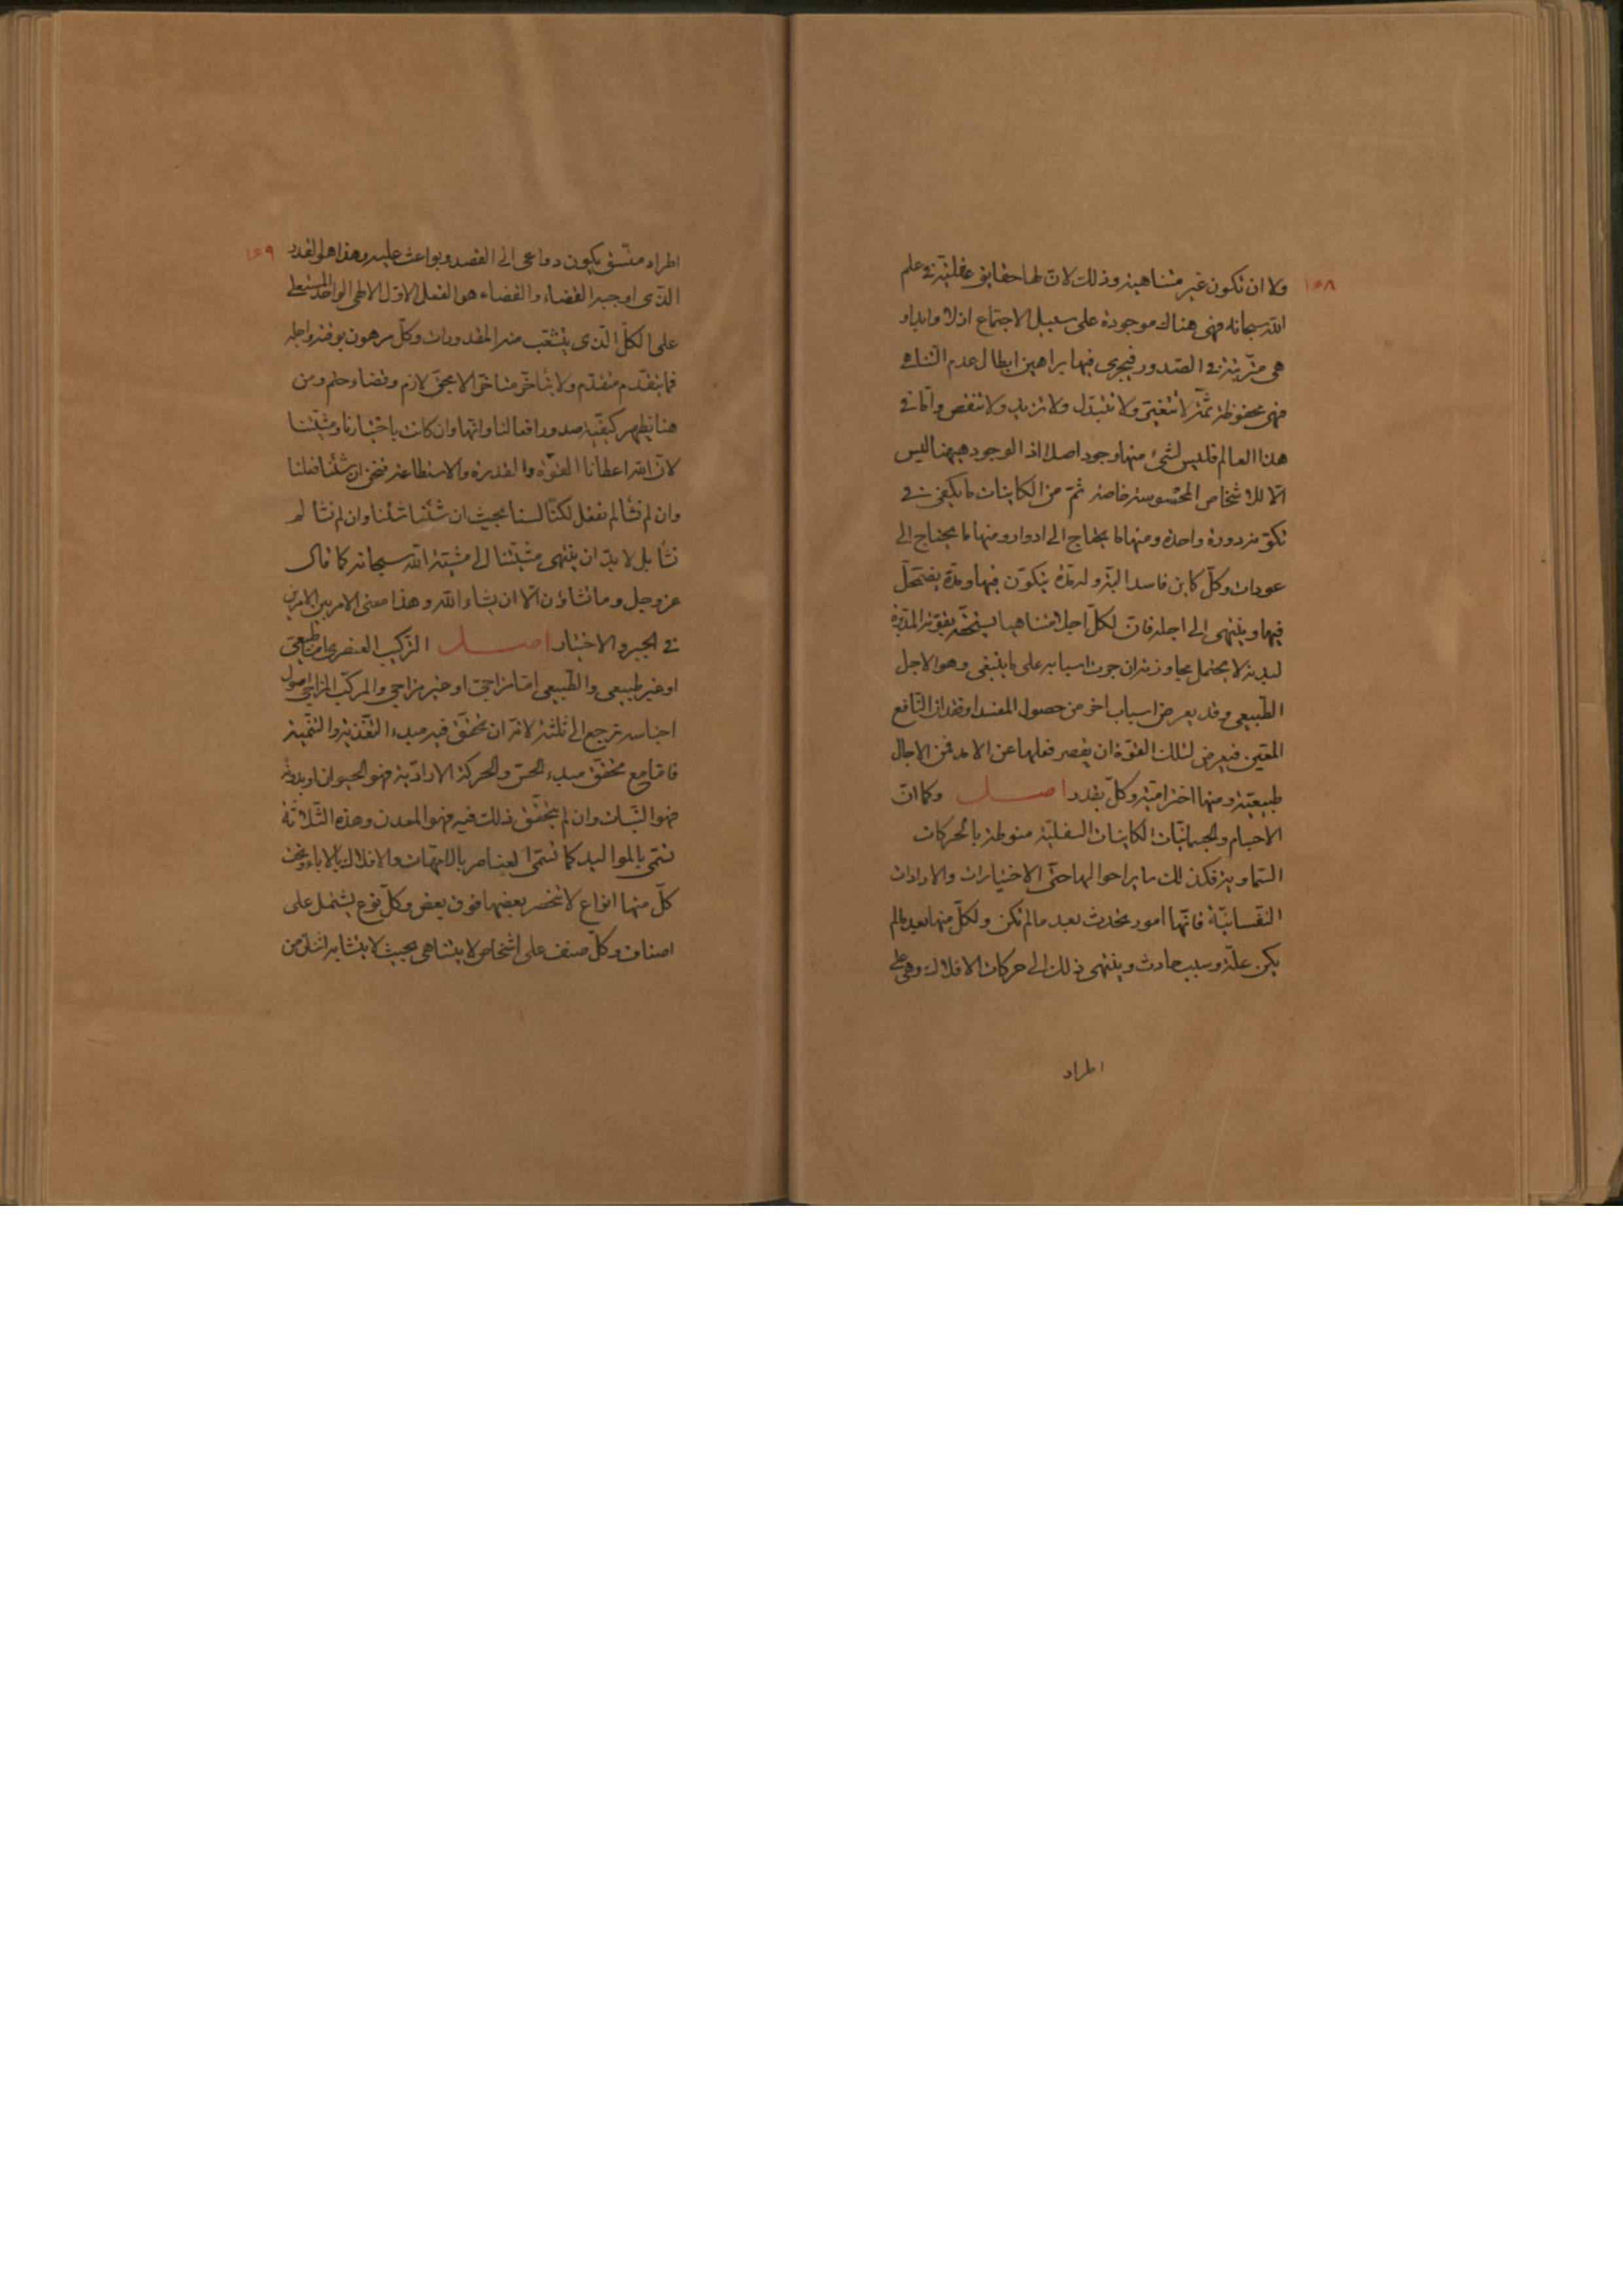 ١٥٨
ولا ان تكون غير متناهية وذلك لان لها حقايق عقلية في علم
الله سبحانه فهي هناك موجودة على سبيل الاجتماع ازلا وابدا و
هي مترتبة في الصدور فيجرى فيها براهين ابطال عدم التناهى
فهي محفوظة ثمة لا تتغير ولا تتبدل ولا تزيد ولا تنقص واما في
هذا العالم فليس لشئ منها وجود اصلا اذ الوجود هيهنا ليس
الا للاشخاص المحسوسة خاصة ثم من الكاينات ما يكفى في
تكونه دورة واحدة ومنها ما يحتاج الى ادوار ومنها ما يحتاج الى
عودات وكل كاين فاسد البتة وله مدة يتكون فيها ومدة يضمحل
فيها وينتهى الى اجله فان لكل اجلا متناهيا يستحقه بقوته المدبرة
لبدنه لا يحتمل مجاوزته ان جرت اسبابه على ما ينبغى وهو الاجل
الطبيعى وقد يعرض اسباب اخر من حصول المفسد او فقدان النافع
المعين فيعرض لتلك القوة ان يقصر فعلها عن الامد فمن الاجال
طبيعية ومنها اخترامية وكل بقدر اصل وكما ان
الاجسام والجسمانيات الكاينات السفلية منوطة بالحركات
السماوية فكذلك ساير احوالها حتى الاختيارات والارادات
النفسانية فانها امور تحدث بعد مالم تكن ولكل منها بعد مالم
يكن علة وسبب حادث وينتهى ذلك الى حركات الافلاك وهي على
اطراد
١٥٩
اطراد متسق يكون دواعى الى القصد وبواعث عليه وهذا هو القدر
الذى اوجبه القضاء والقضاء هو الفعل الاول الالهى الواحد المستعلى
على الكل الذى يتشعب منه المقدورات وكل مرهون بوقته واجله
فما يتقدم متقدم ولا يتاخر متاخر الا بحق لازم وقضاء حتم ومن
هنا يظهر كيفية صدور افعالنا وانها وان كانت باختيارنا ومشيتنا
لان الله اعطانا القوة والقدرة والاستطاعة فنحن ان شئنا فعلنا
وان لم نشا لم نفعل لكنا لسنا بحيث ان شئنا شئنا وان لم نشا لم
نشا بل لا بد ان ينتهى مشيتنا الى مشية الله سبحانه كما قال
عز وجل وما تشاؤن الا ان يشاء الله وهذا معنى الامر بين الامرين
في الجبر والاختيار اصل التركيب العنصرى اما طبيعى
او غير طبيعى والطبيعى اما مزاجى او غير مزاجى والمركب المزاجى اصول
اجناسه ترجع الى ثلثة لانه ان تحقق فيه مبدء التغذية والتنمية
فاما مع تحقق مبدء الحس والحركة الارادية فهو الحيوان او بدونه
فهو النبات وان لم يتحقق ذلك فيه فهو المعدن وهذه الثلاثة
تسمى بالمواليد كما تسمى العناصر بالامهات والافلاك بالاباء وتحت
كل منها انواع لا تنحصر بعضها فوق بعض وكل نوع يشتمل على
اصناف وكل صنف على اشخاص لا يتناهى بحيث لا يتشابه اثنان من